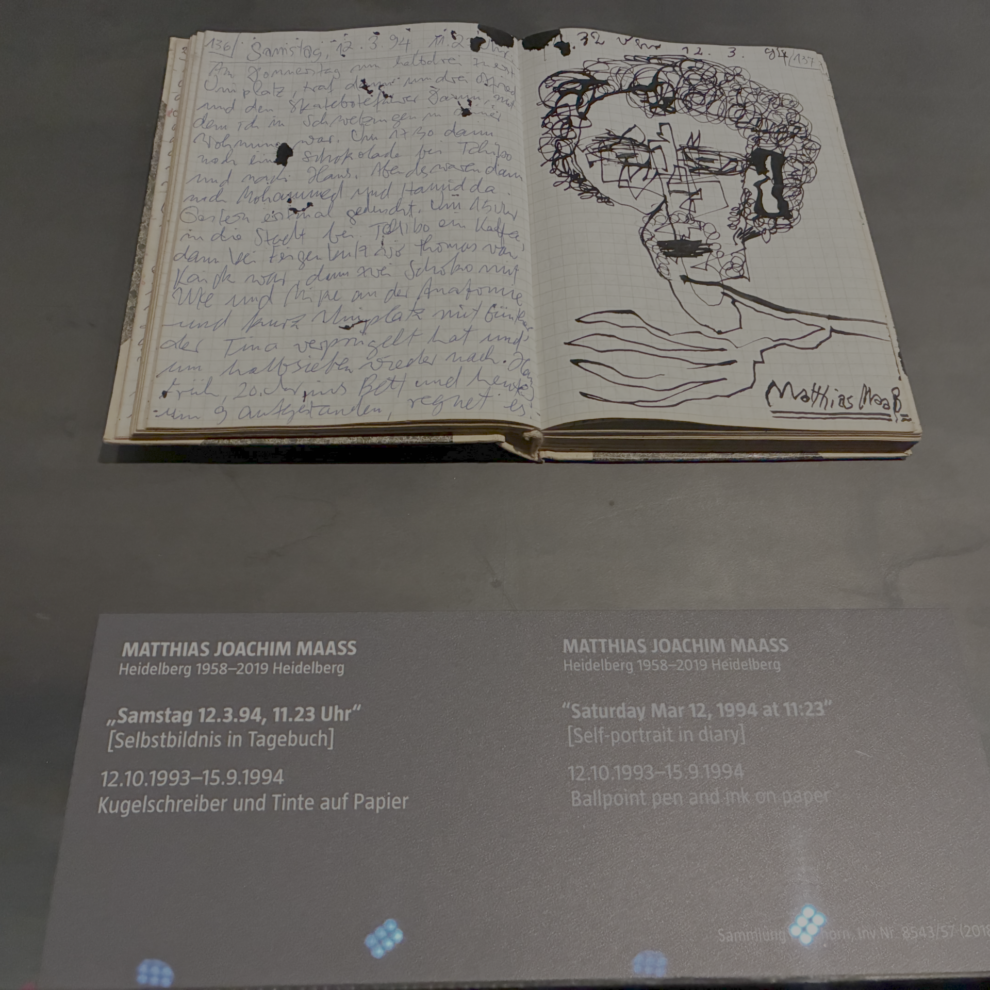 136/
Samstag, 12.3.94 11.2
um halbdrei
Uniplatz, traf
und den Skatebotefahrer
dem ich in Schwetzingen in
Wohnung war. Um 17 30 dann
noch eine Schokolade bei Tchibo
und nach Haus. Abends waren dann
noch Mohammed und Hamid da
Gestern einmal geduscht. Um 15 Uhr
in die Stadt bei Tchibo ein Kaffee,
dann bei wo Thomas von
war, dann zwei Schoko mit
Ute und an der Anatomie
und kurz Uniplatz mit
der Tina verprügelt hat und
um halbsieben wieder nach.
früh, 20 Uhr ins Bett und heute
um 9 aufgestanden, regnet es.
.32 12. 3. 94 /137
Matthias Maaß
MATTHIAS JOACHIM MAASS
Heidelberg 1958–2019 Heidelberg
„Samstag 12.3.94, 11.23 Uhr“
[Selbstbildnis in Tagebuch]
12.10.1993–15.9.1994
Kugelschreiber und Tinte auf Papier
MATTHIAS JOACHIM MAASS
Heidelberg 1958–2019 Heidelberg
“Saturday Mar 12, 1994 at 11:23”
[Self-portrait in diary]
12.10.1993–15.9.1994
Ballpoint pen and ink on paper
Sammlung Inv.Nr. 8543/ST-(2018